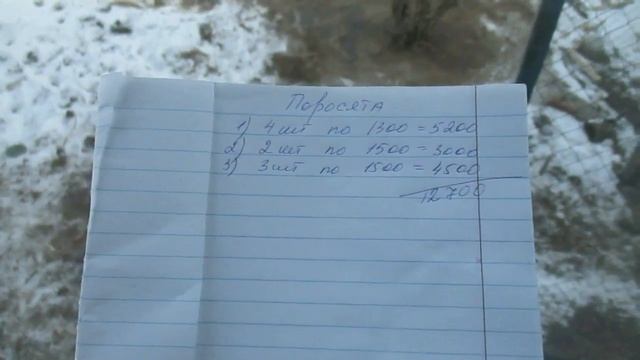 Поросята
1) 4 шт по 1300 = 5200
2) 2 шт по 1500 = 3000
3) 3 шт по 1500 = 4500
12700